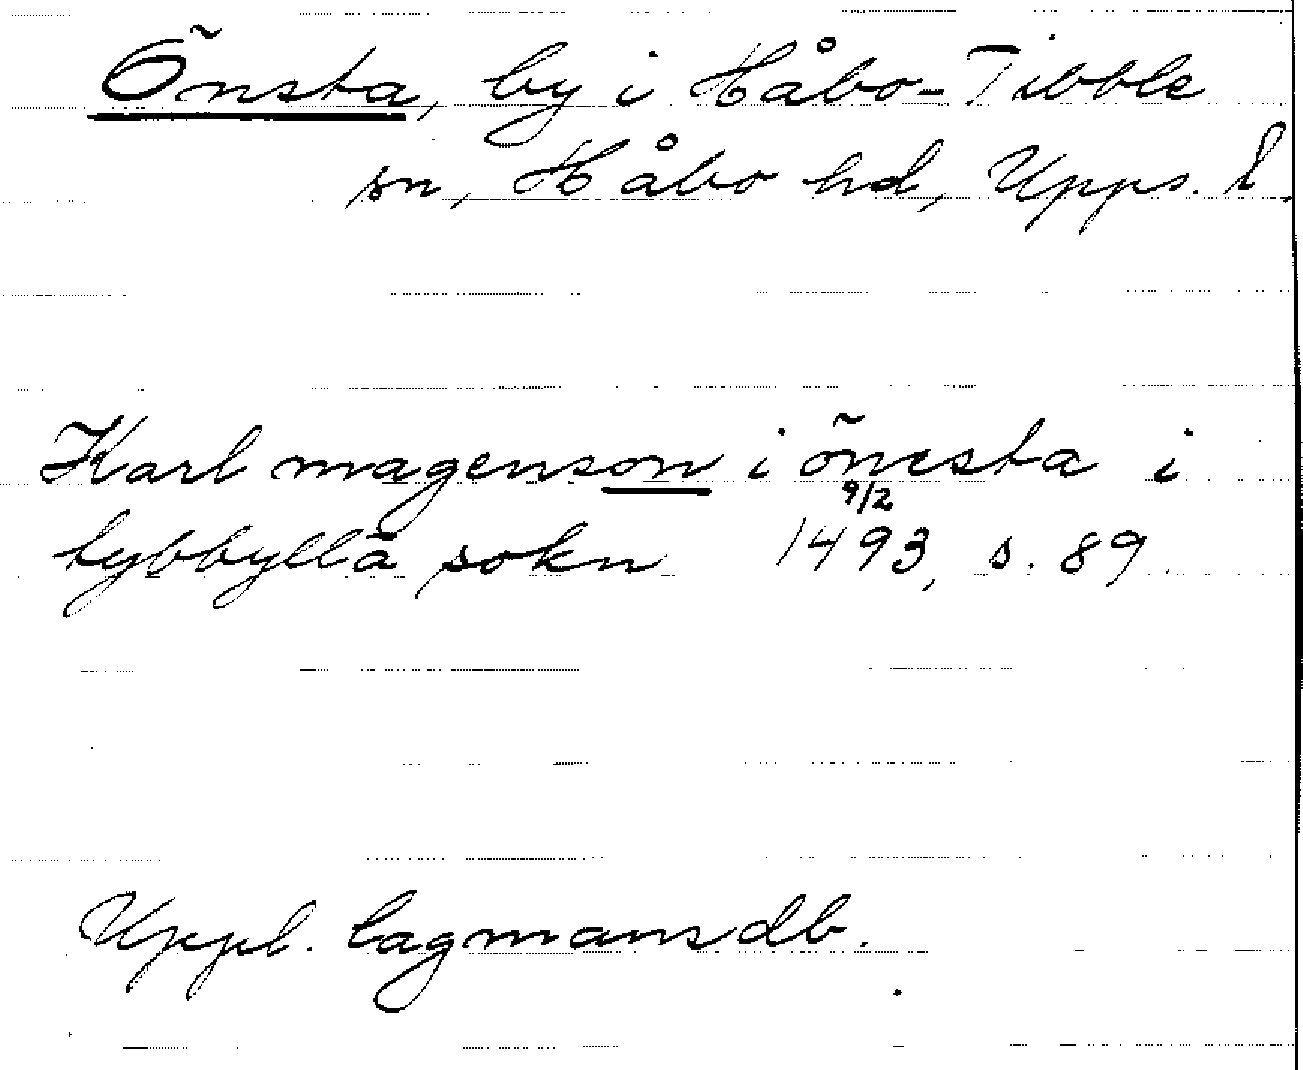 Õnsta, by i Håbo-Tibble
sn, Håbo hd, Upps. l.
Karl magenson i õnesta i
tybbylla sokn 9/2 1493, s. 89.
Uppl. lagmansdb.